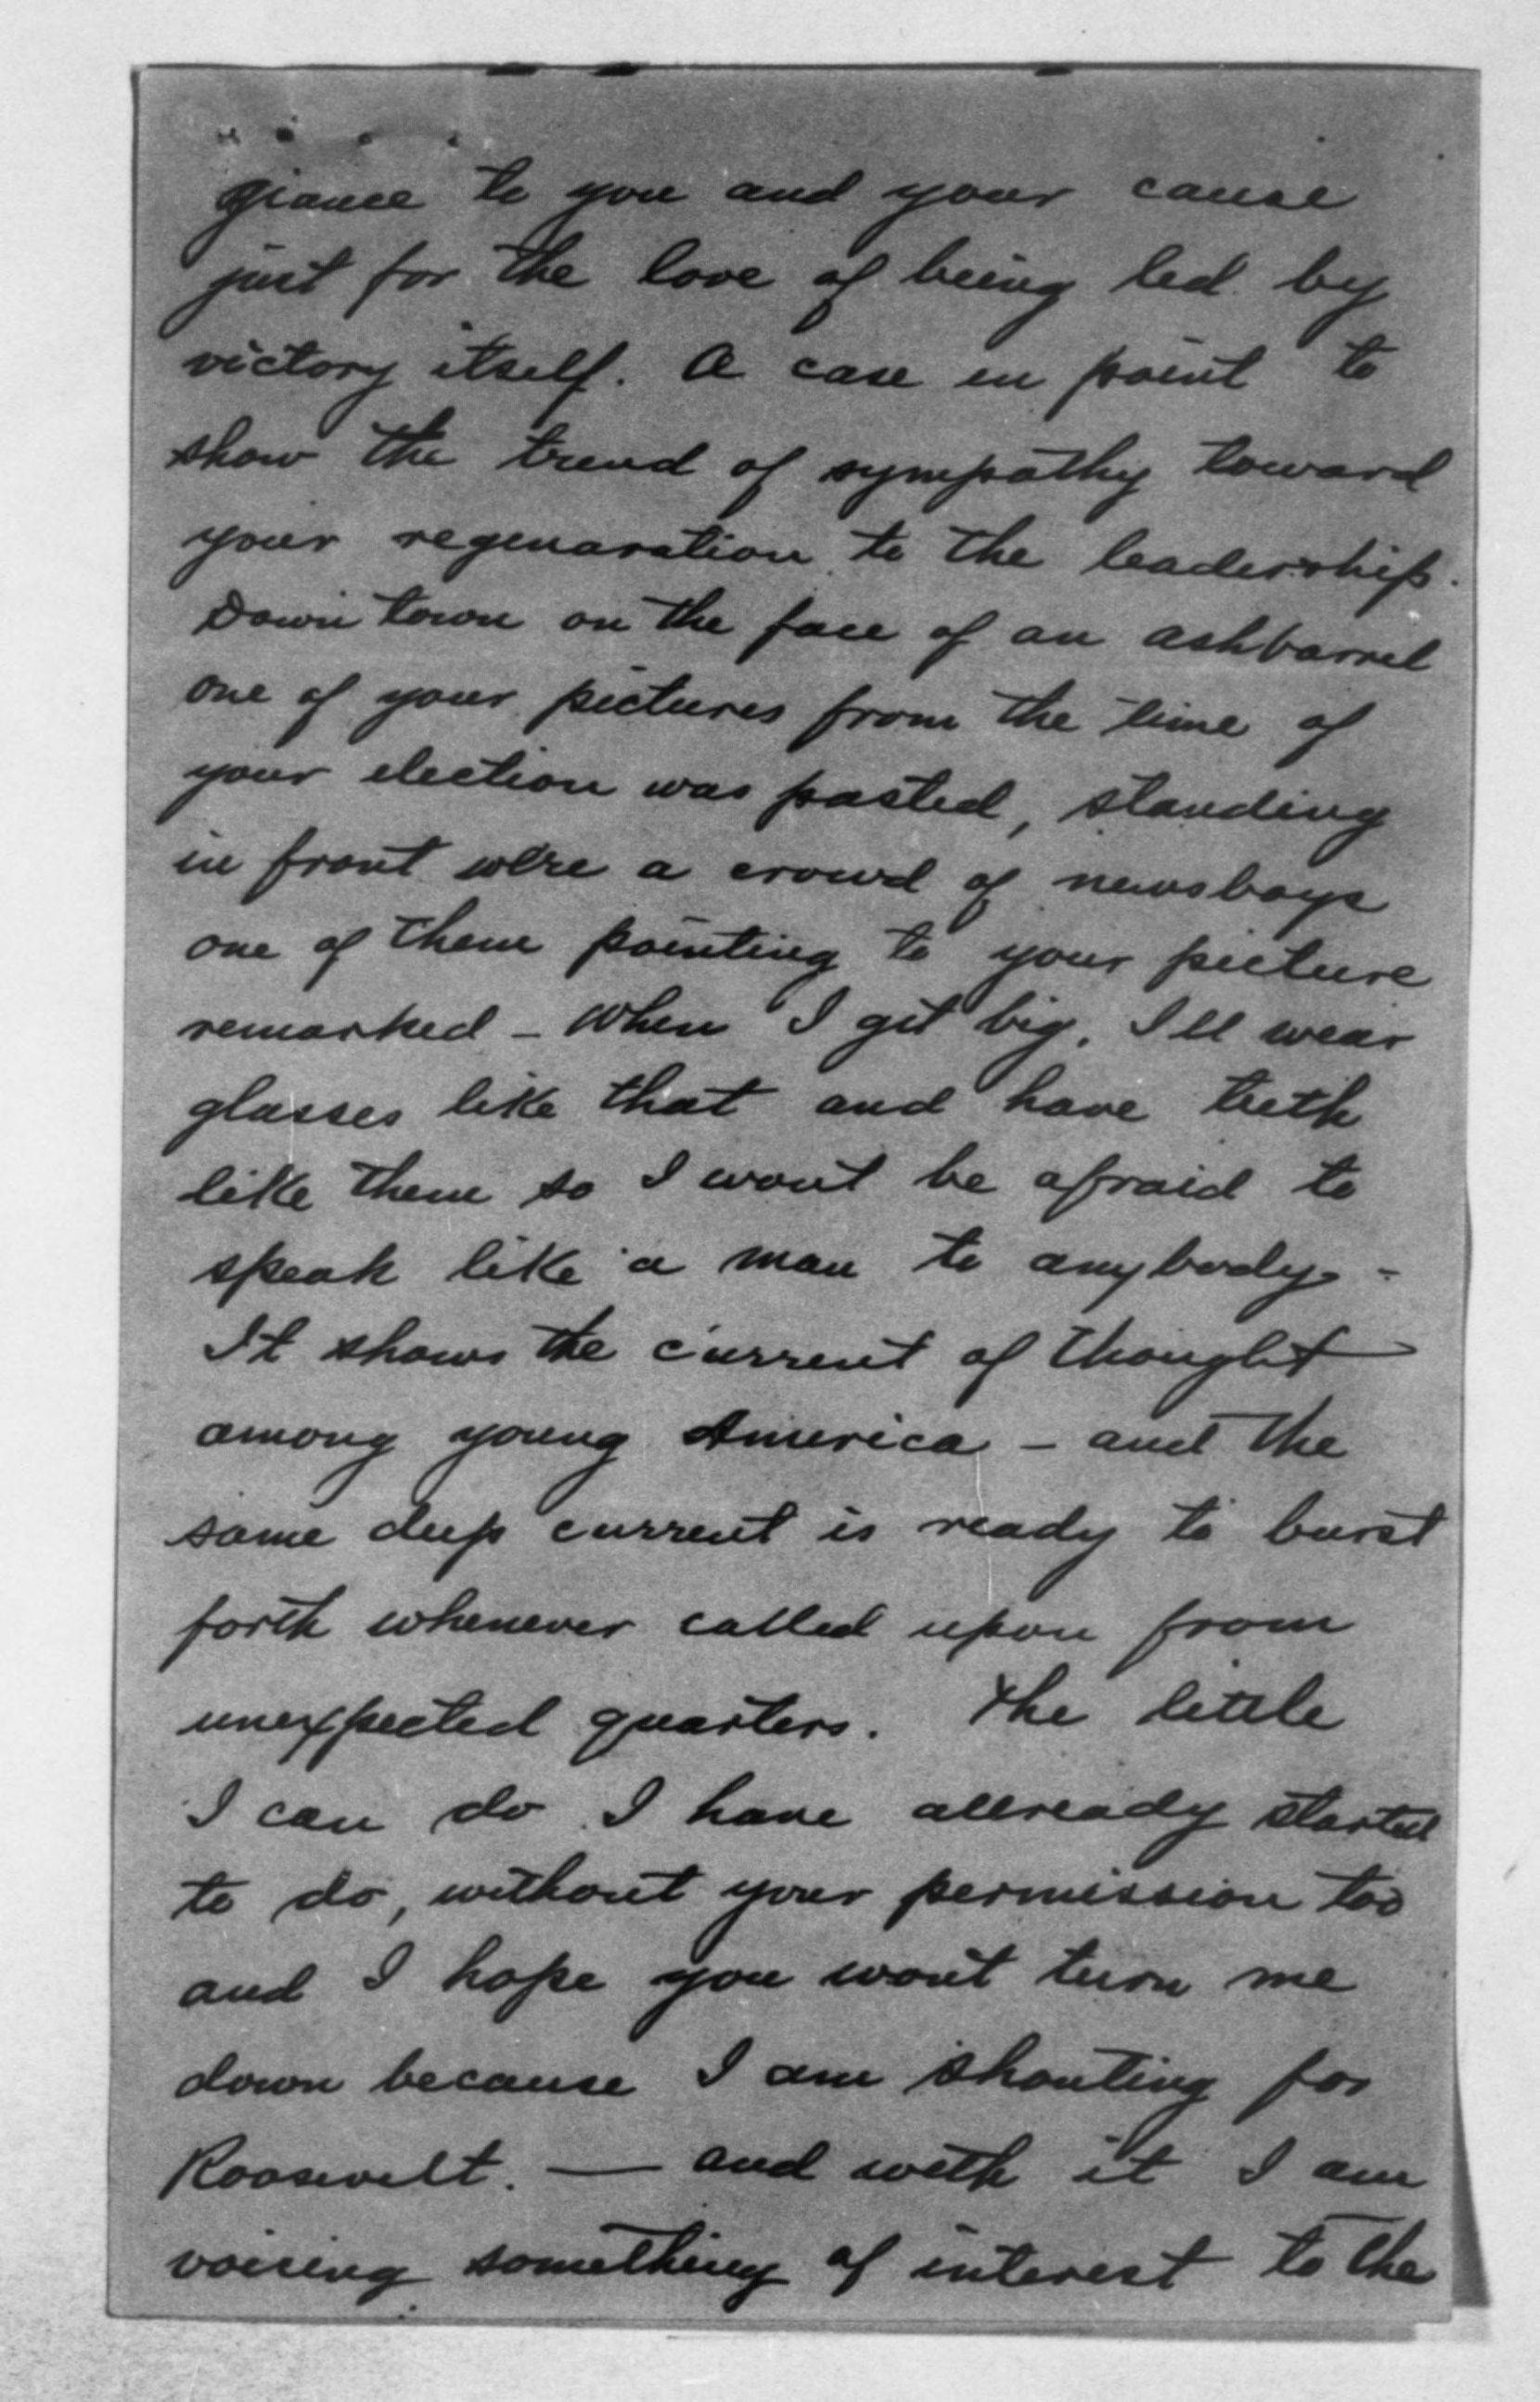 giance to you and your cause
just for the love of being led by
victory itself. A case in point to
show the trend of sympathy toward
your regenaration to the leadership.
Down town on the face of an ashbarrel
one of your pictures from the time of
your election was pasted, standing
in front were a crowd of newsboys
one of them pointing to your picture
remarked - When I git big, I'll wear
glasses like that and have teeth
like them so I wont be afraid to
speak like a man to anybody -
It shows the current of thought
among young America - and the
same deep current is ready to burst
forth whenever called upon from
unexpected quarters. The little
I can do I have allready started
to do, without your permission too
and I hope you wont turn me
down because I am shouting for
Roosevelt. — and with it I am
voicing something of interest to the